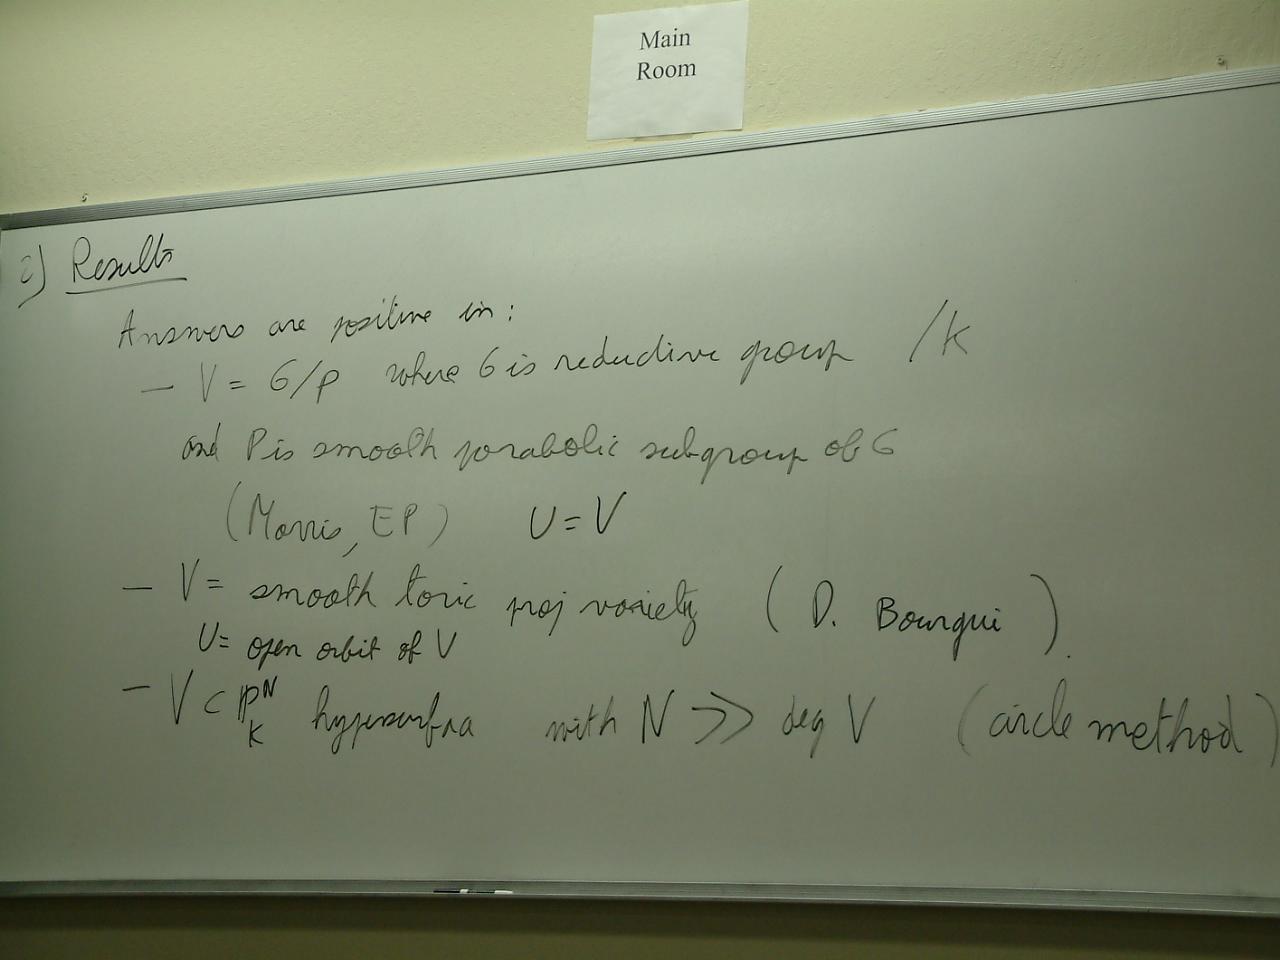 Main
Room
c) Results
Answers are positive in:
— V = G/P where G is reductive group /k
and P is smooth parabolic subgroup of G
(Morris, EP) U = V
— V = smooth toric proj variety (D. Bourqui).
U = open orbit of V
— V ⊂ ℙᴺₖ hypersurfa with N >> deg V (circle method)